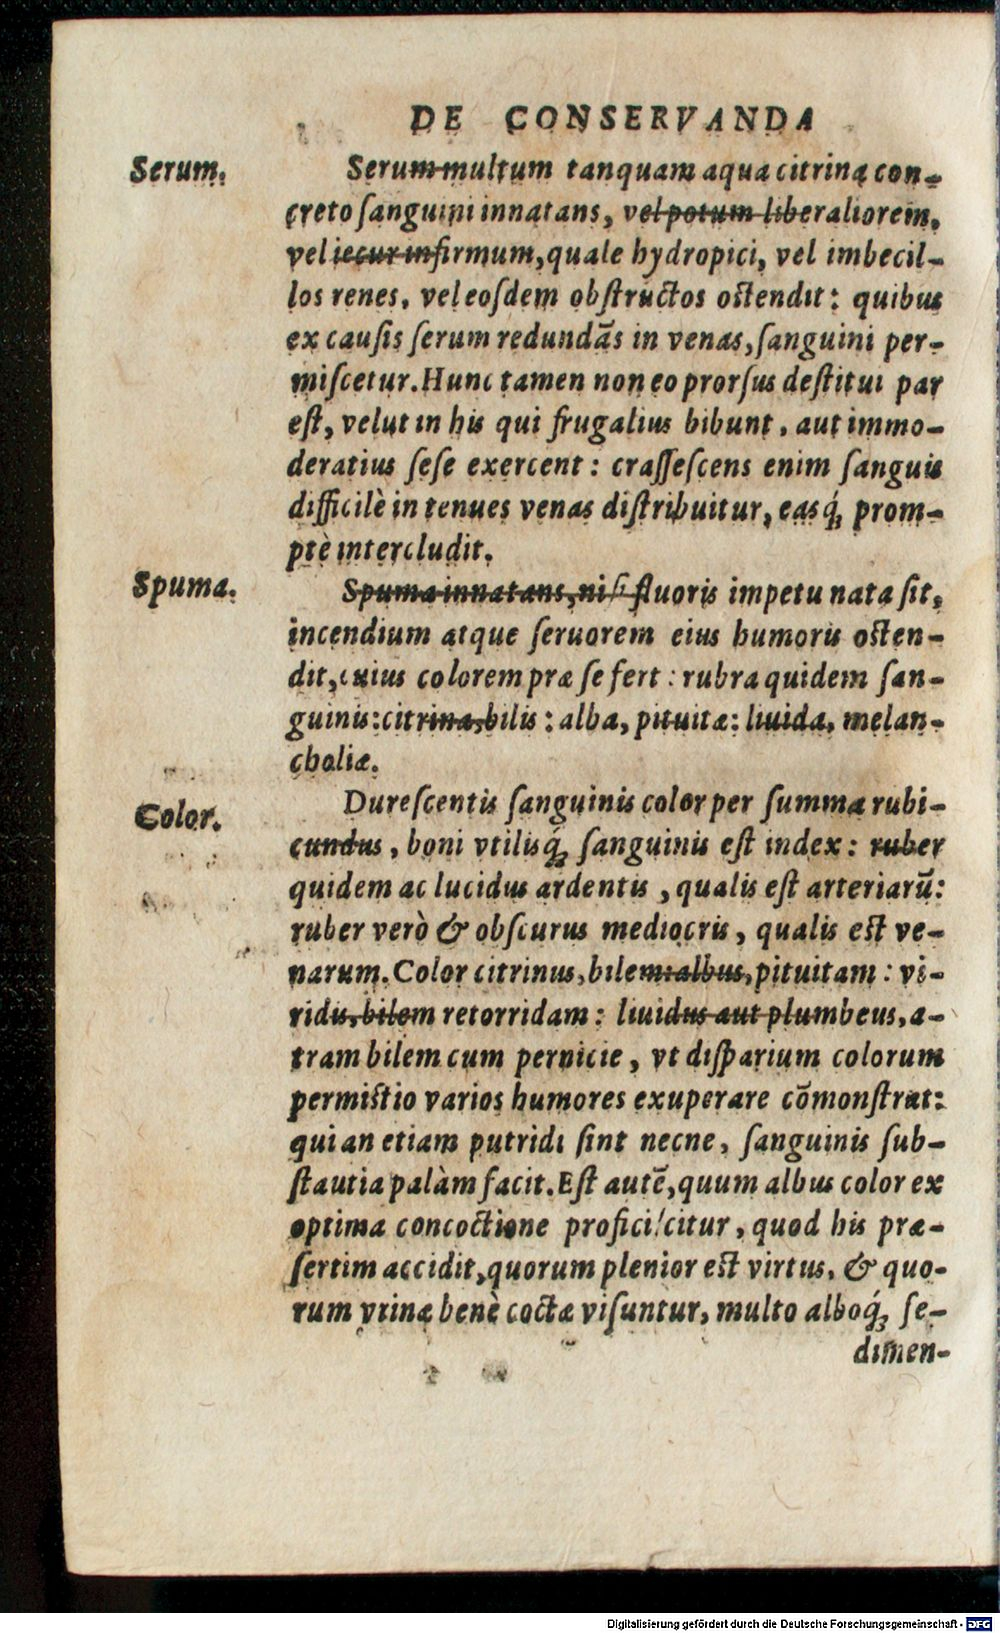 DE CONSERVANDA
Serum.
Serum multum tanquam aqua citrina con-
creto ſanguini innatans, vel potum liberaliorem,
vel iecur infirmum, quale hydropici, vel imbecil-
los renes, vel eoſdem obſtructos oſtendit: quibus
ex cauſis ſerum redundãs in venas, ſanguini per-
miſcetur. Hunc tamen non eo prorſus deſtitui par
eſt, velut in his qui frugalius bibunt, aut immo-
deratius ſeſe exercent: craſſeſcens enim ſanguis
difficilè in tenues venas diſtribuitur, easq́; prom-
ptè intercludit.
Spuma.
Spuma innatans, niſi fluoris impetu nata ſit,
incendium atque feruorem eius humoris oſten-
dit, cuius colorem præ ſe fert: rubra quidem ſan-
guinis: citrina, bilis: alba, pituitæ: liuida, melan-
choliæ.
Color.
Dureſcentis ſanguinis color per ſumma rubi-
cundus, boni vtilisq́; ſanguinis eſt index: ruber
quidem ac lucidus ardentis, qualis eſt arteriarũ:
ruber verò & obſcurus mediocris, qualis eſt ve-
narum. Color citrinus, bilem: albus, pituitam: vi-
ridis, bilem retorridam: liuidus aut plumbeus, a-
tram bilem cum pernicie, vt diſparium colorum
permiſtio varios humores exuperare cõmonſtrat:
qui an etiam putridi ſint necne, ſanguinis ſub-
ſtautia palàm facit. Eſt autẽ, quum albus color ex
optima concoctione proficiſcitur, quod his præ-
ſertim accidit, quorum plenior eſt virtus, & quo-
rum vrinæ benè coctæ viſuntur, multo alboq́; ſe-
dimen-
Digitalisierung gefördert durch die Deutsche Forschungsgemeinschaft - DFG